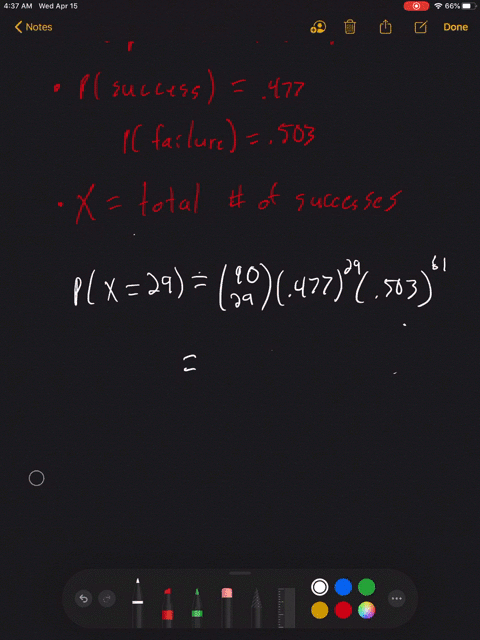 4:37 AM Wed Apr 15
66%
Notes
Done
• P(success) = .477
P(failure) = .503
• X = total # of successes
P(X = 29) = (90 29)(.477)^29(.503)^61
=